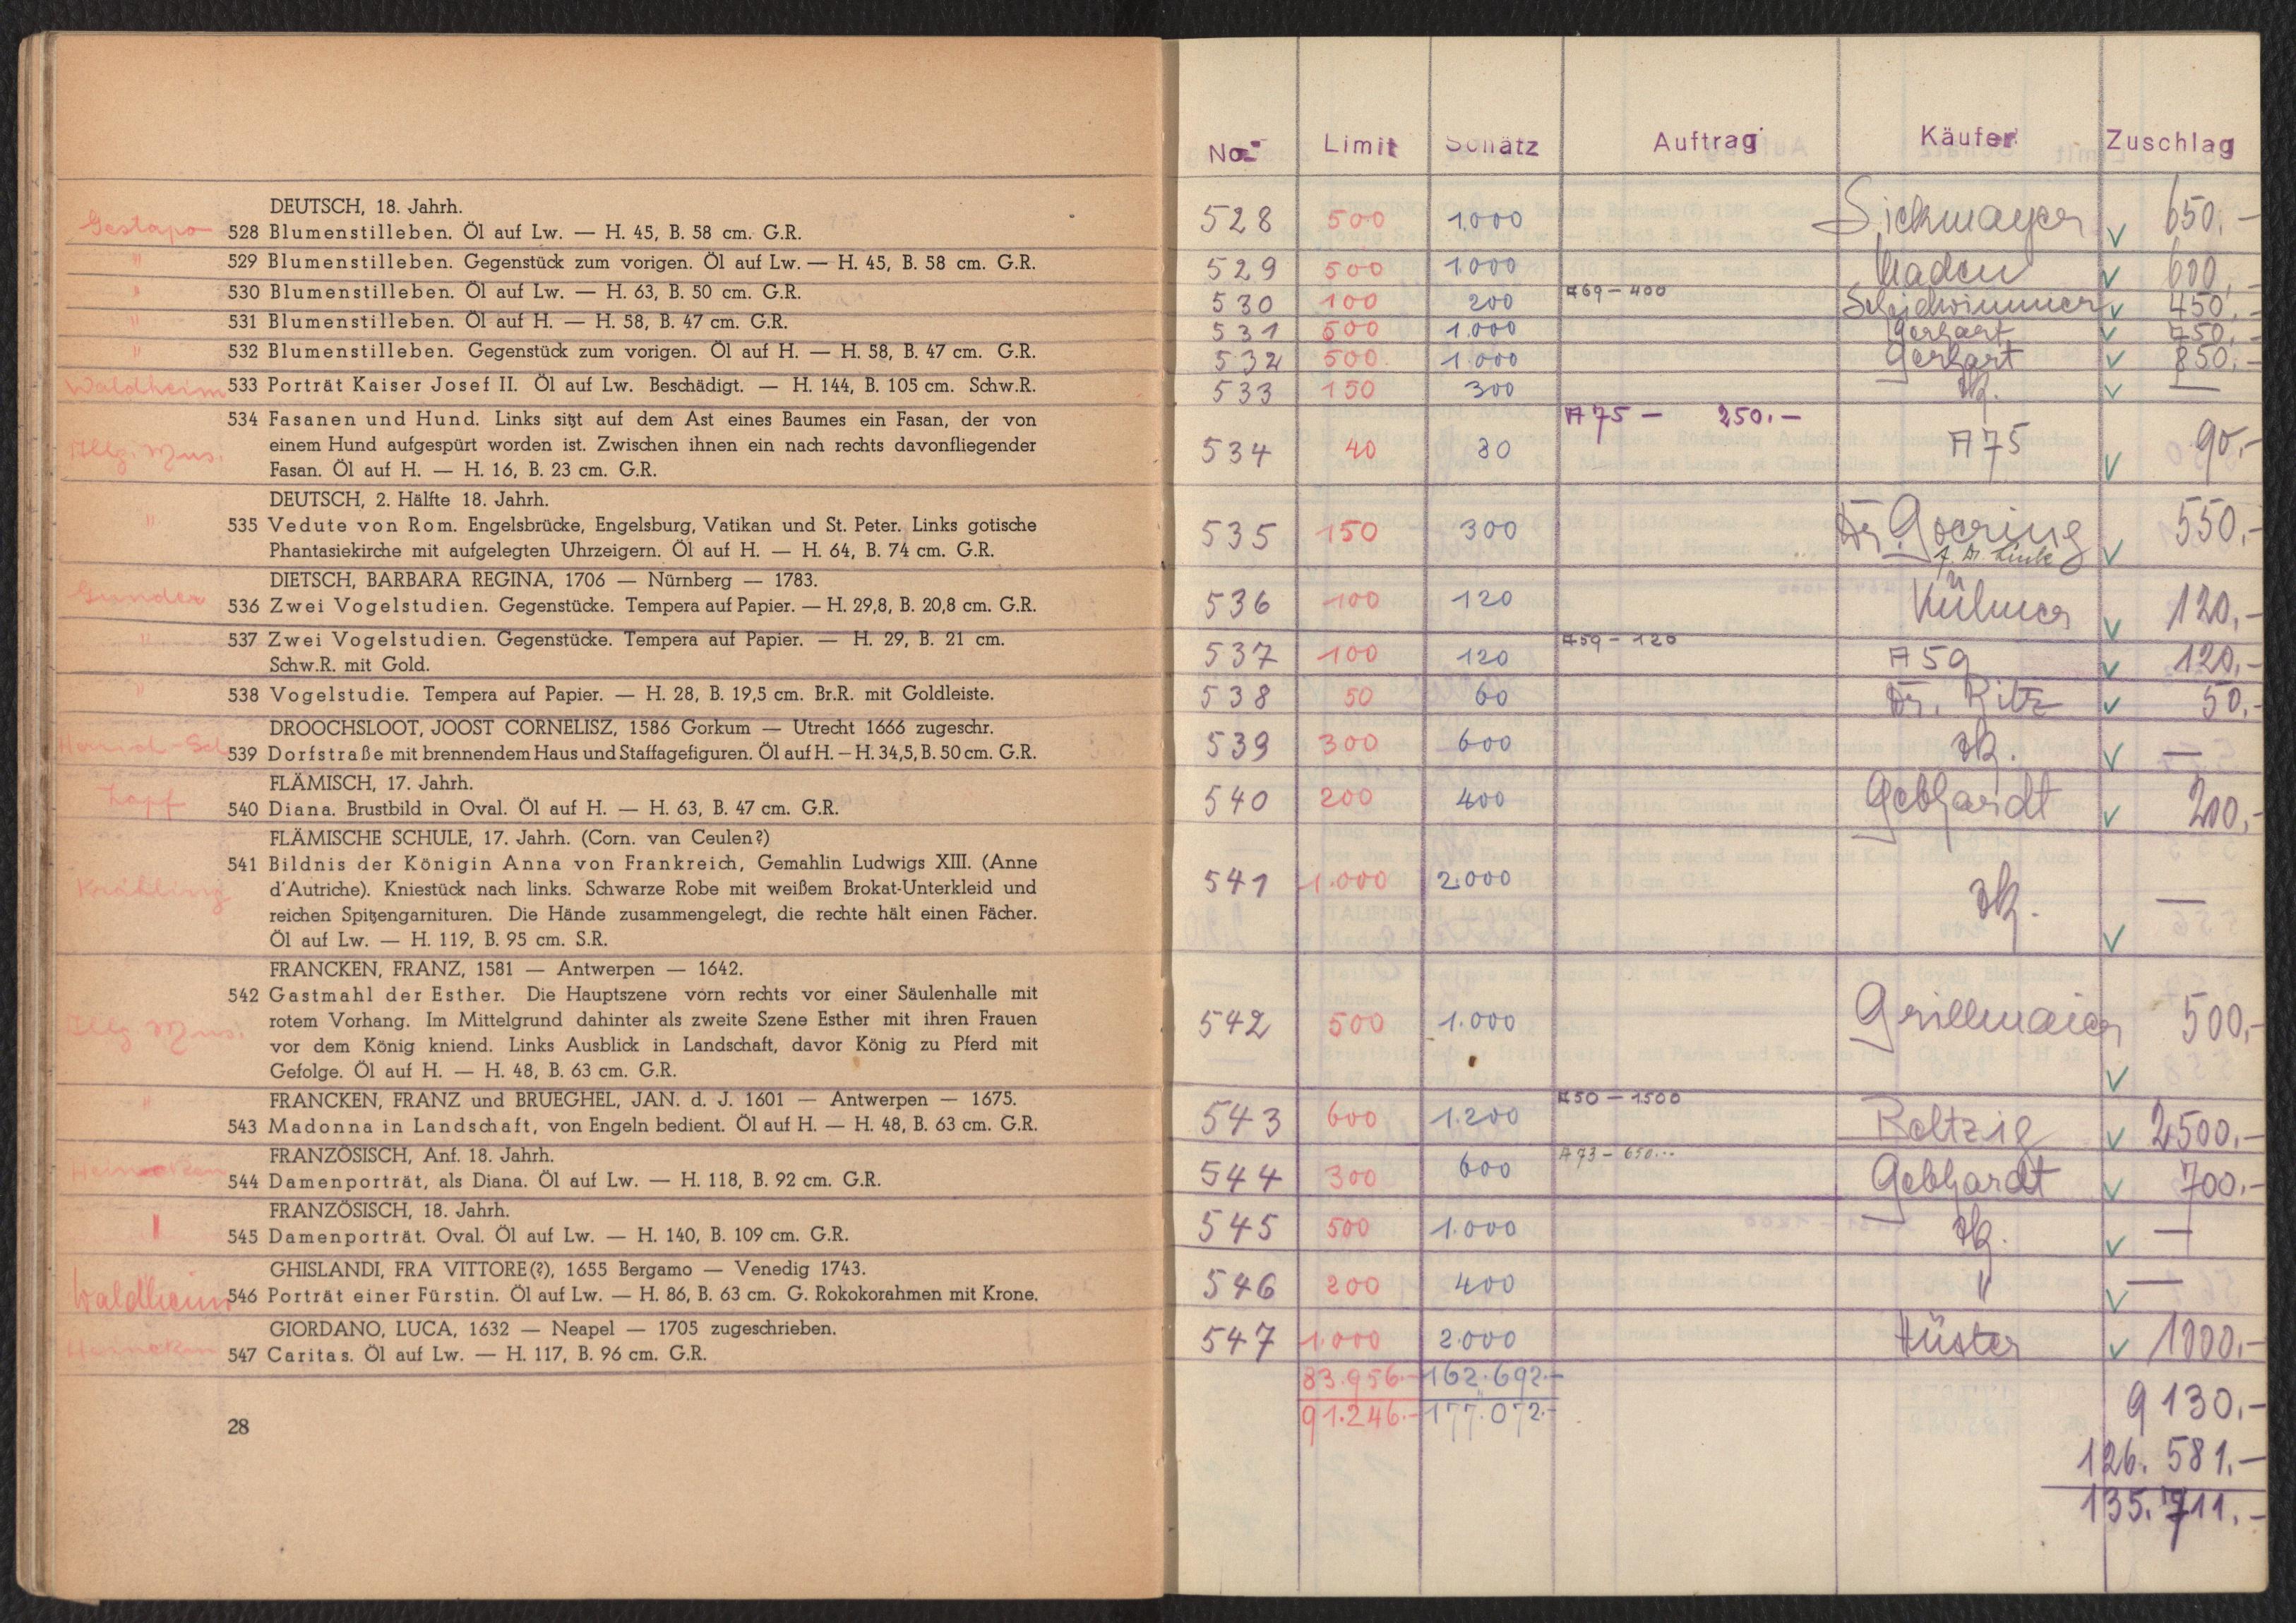 DEUTSCH, 18. Jahrh.
Gestapo 528 Blumenstilleben. Öl auf Lw. — H. 45, B. 58 cm. G.R.
" 529 Blumenstilleben. Gegenstück zum vorigen. Öl auf Lw. — H. 45, B. 58 cm. G.R.
" 530 Blumenstilleben. Öl auf Lw. — H. 63, B. 50 cm. G.R.
" 531 Blumenstilleben. Öl auf H. — H. 58, B. 47 cm. G.R.
" 532 Blumenstilleben. Gegenstück zum vorigen. Öl auf H. — H. 58, B. 47 cm. G.R.
Waldheim 533 Porträt Kaiser Josef II. Öl auf Lw. Beschädigt. — H. 144, B. 105 cm. Schw.R.
534 Fasanen und Hund. Links sitzt auf dem Ast eines Baumes ein Fasan, der von
einem Hund aufgespürt worden ist. Zwischen ihnen ein nach rechts davonfliegender
Mus. Fasan. Öl auf H. — H. 16, B. 23 cm. G.R.
DEUTSCH, 2. Hälfte 18. Jahrh.
" 535 Vedute von Rom. Engelsbrücke, Engelsburg, Vatikan und St. Peter. Links gotische
Phantasiekirche mit aufgelegten Uhrzeigern. Öl auf H. — H. 64, B. 74 cm. G.R.
DIETSCH, BARBARA REGINA, 1706 — Nürnberg — 1783.
Gunder 536 Zwei Vogelstudien. Gegenstücke. Tempera auf Papier. — H. 29,8, B. 20,8 cm. G.R.
" 537 Zwei Vogelstudien. Gegenstücke. Tempera auf Papier. — H. 29, B. 21 cm.
Schw.R. mit Gold.
" 538 Vogelstudie. Tempera auf Papier. — H. 28, B. 19,5 cm. Br.R. mit Goldleiste.
DROOCHSLOOT, JOOST CORNELISZ, 1586 Gorkum — Utrecht 1666 zugeschr.
539 Dorfstraße mit brennendem Haus und Staffagefiguren. Öl auf H. — H. 34,5, B. 50 cm. G.R.
FLÄMISCH, 17. Jahrh.
Zopf 540 Diana. Brustbild in Oval. Öl auf H. — H. 63, B. 47 cm. G.R.
FLÄMISCHE SCHULE, 17. Jahrh. (Corn. van Ceulen?)
541 Bildnis der Königin Anna von Frankreich, Gemahlin Ludwigs XIII. (Anne
Krähling d'Autriche). Kniestück nach links. Schwarze Robe mit weißem Brokat-Unterkleid und
reichen Spitzengarnituren. Die Hände zusammengelegt, die rechte hält einen Fächer.
Öl auf Lw. — H. 119, B. 95 cm. S.R.
FRANCKEN, FRANZ, 1581 — Antwerpen — 1642.
542 Gastmahl der Esther. Die Hauptszene vorn rechts vor einer Säulenhalle mit
Mus. rotem Vorhang. Im Mittelgrund dahinter als zweite Szene Esther mit ihren Frauen
vor dem König kniend. Links Ausblick in Landschaft, davor König zu Pferd mit
Gefolge. Öl auf H. — H. 48, B. 63 cm. G.R.
" FRANCKEN, FRANZ und BRUEGHEL, JAN. d. J. 1601 — Antwerpen — 1675.
543 Madonna in Landschaft, von Engeln bedient. Öl auf H. — H. 48, B. 63 cm. G.R.
FRANZÖSISCH, Anf. 18. Jahrh.
Heineken 544 Damenporträt, als Diana. Öl auf Lw. — H. 118, B. 92 cm. G.R.
FRANZÖSISCH, 18. Jahrh.
545 Damenporträt. Oval. Öl auf Lw. — H. 140, B. 109 cm. G.R.
GHISLANDI, FRA VITTORE(?), 1655 Bergamo — Venedig 1743.
Waldheim 546 Porträt einer Fürstin. Öl auf Lw. — H. 86, B. 63 cm. G. Rokokorahmen mit Krone.
GIORDANO, LUCA, 1632 — Neapel — 1705 zugeschrieben.
Heineken 547 Caritas. Öl auf Lw. — H. 117, B. 96 cm. G.R.
28
No. Limit Schätz Auftrag Käufer Zuschlag
528 500 1.000 Sickmayer 650.-
529 500 1000 Maden 600.-
530 100 200 A69 - 400 Scheidwimmer 450.-
531 500 1.000 Gerhart 750.-
532 500 1.000 Gerhart 850.-
533 150 300 Zk. —
A75 - 250.-
534 40 80 A75 90.-
535 150 300 Dr. Goering 550.-
f. Dr. Link
536 100 120 120.-
537 100 120 A59 - 120 A59 120.-
538 50 60 Dr. Ritz 50.-
539 300 600 Zk. —
540 200 400 Gebhardt 200.-
541 1.000 2.000 Zk. —
542 500 1.000 Grillmaier 500.-
543 600 1.200 A50 - 1500 Reltzig 2500.-
544 300 600 A73 - 650.- Gebhardt 700.-
545 500 1.000 Zk. —
546 200 400 " —
547 1.000 2.000 Hüster 1000.-
83.956.- 162.692.-
91.246.- 177.072.- 9130.-
126.581.-
135.711.-